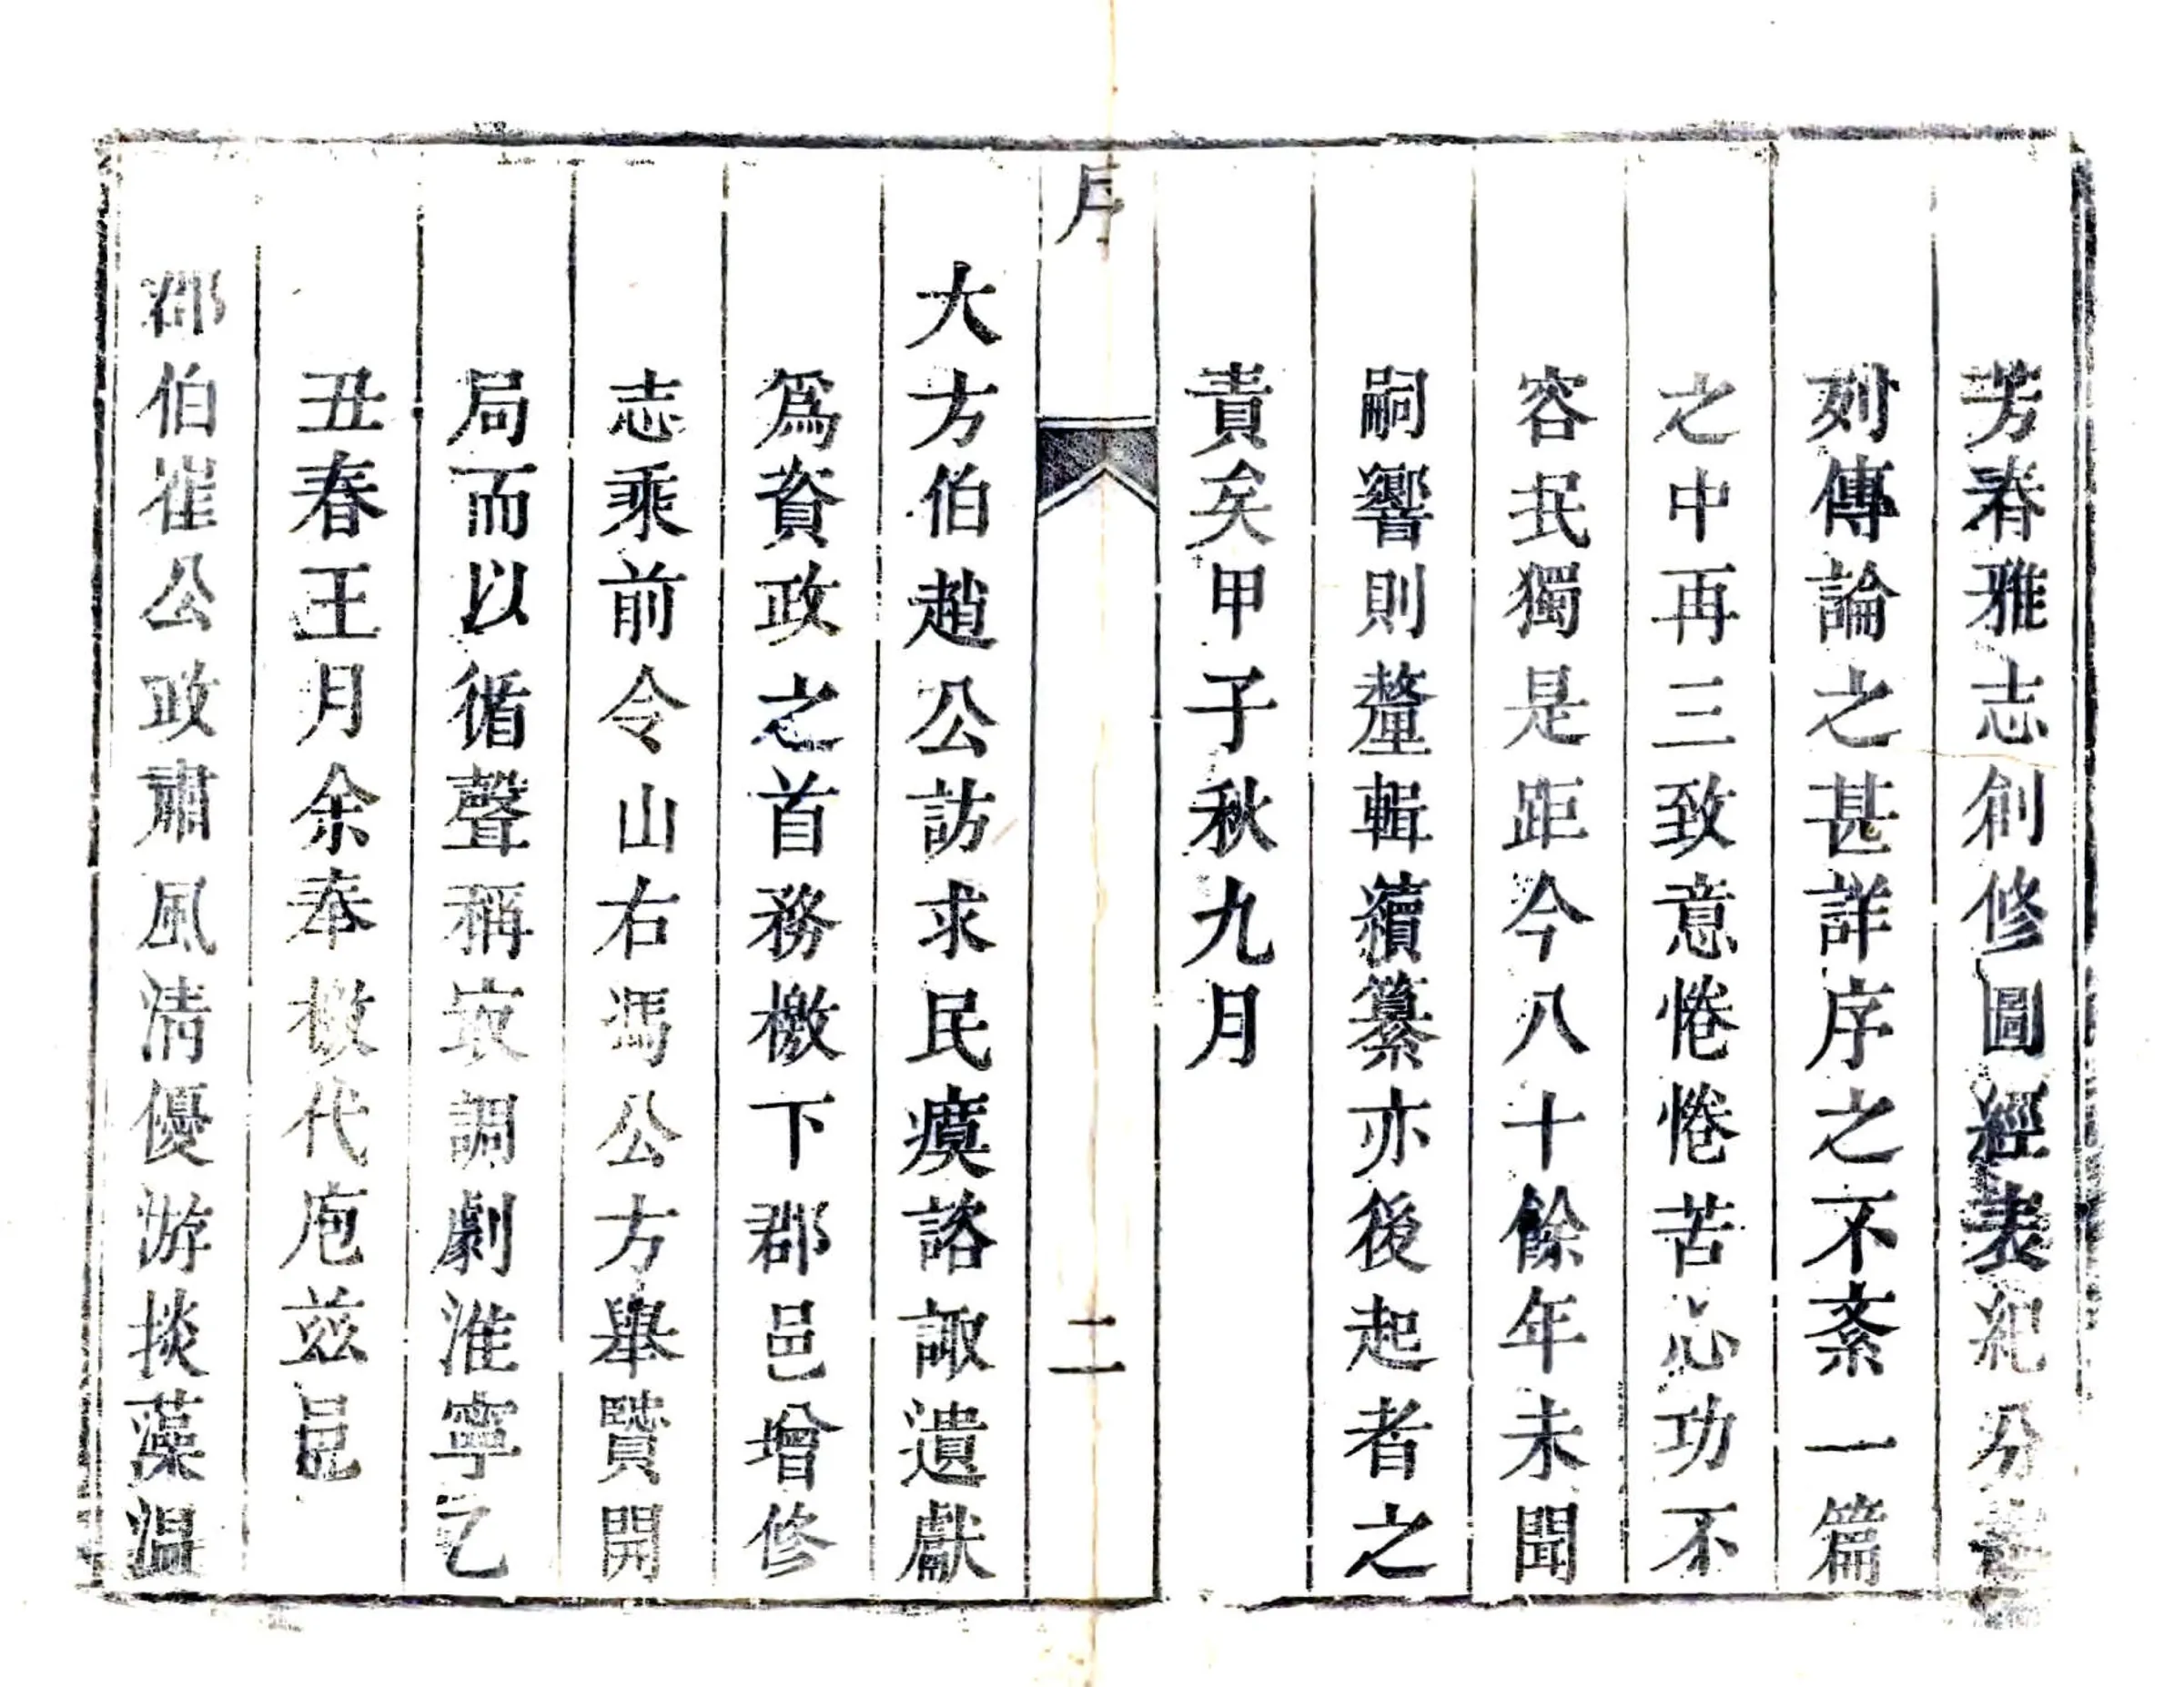 芳春雅志創修圖經表紀分
列傳論之甚詳序之不紊一篇
之中再三致意惓惓苦心功不
容民獨是距今八十餘年未聞
嗣響則釐輯纘纂亦後起者之
責矣甲子秋九月
序
二
大方伯趙公訪求民瘼諮諏遺獻
爲資政之首務檄下郡邑增修
志乘前令山右馮公方舉賢開
局而以循聲稱㝡調劇淮寧乙
丑春王月余奉檄代庖茲邑
郡伯崔公政肅風清優游掞藻溫